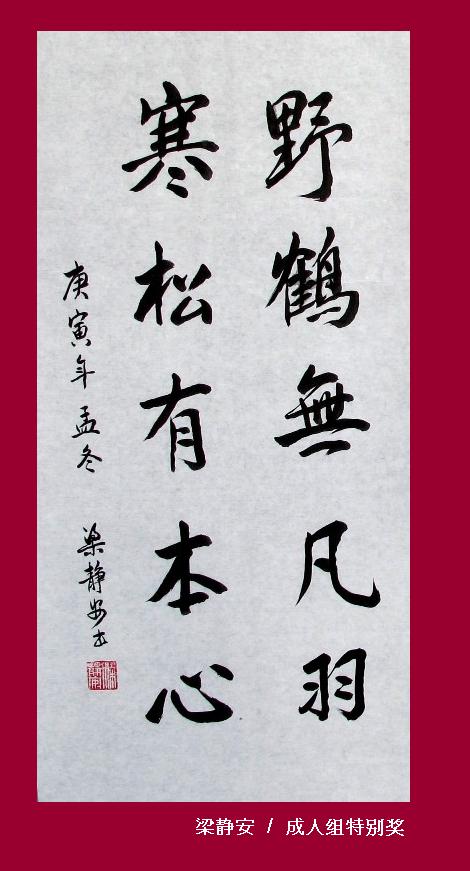 野鶴無凡羽
寒松有本心
庚寅年孟冬 梁静安书
梁静安 / 成人组特别奖